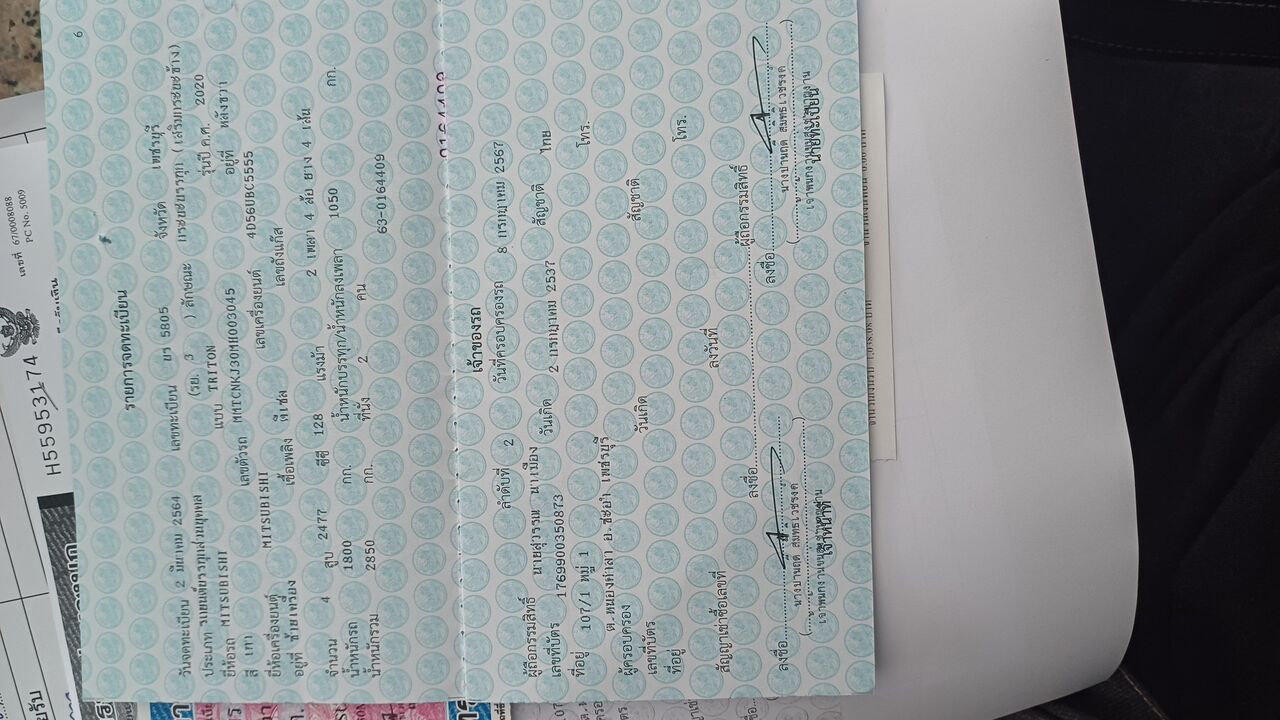 6
รายการจดทะเบียน
วันจดทะเบียน 2 มีนาคม 2564 เลขทะเบียน ยร 5805 จังหวัด เพชรบุรี
ประเภท รถยนต์บรรทุกส่วนบุคคล (รย. 3 ) ลักษณะ กระบะบรรทุก (เสริมกระบะข้าง)
ยี่ห้อรถ MITSUBISHI แบบ TRITON รุ่นปี ค.ศ. 2020
สี เทา เลขตัวรถ MMTCNKJ30MH003045 อยู่ที่ หลังขวา
ยี่ห้อเครื่องยนต์ MITSUBISHI เลขเครื่องยนต์ 4D56UBC5555
อยู่ที่ ซ้ายเครื่อง เชื้อเพลิง ดีเซล เลขถังแก๊ส
จำนวน 4 สูบ 2477 ซีซี 128 แรงม้า 2 เพลา 4 ล้อ ยาง 4 เส้น
น้ำหนักรถ 1800 กก. น้ำหนักบรรทุก/น้ำหนักลงเพลา 1050 กก.
น้ำหนักรวม 2850 กก. ที่นั่ง 2 คน 63-0164409
เจ้าของรถ
ลำดับที่ 2 วันที่ครอบครองรถ 8 กรกฎาคม 2567
ผู้ถือกรรมสิทธิ์ นายสุวรรณ นาเมือง
เลขที่บัตร 1769900350873 วันเกิด 2 กรกฎาคม 2537 สัญชาติ ไทย
ที่อยู่ 107/1 หมู่ 1 โทร.
ต.หนองศาลา อ.ชะอำ เพชรบุรี
ผู้ครอบครอง
เลขที่บัตร วันเกิด สัญชาติ
ที่อยู่ โทร.
สัญญาเช่าซื้อเลขที่ ลงวันที่
ลงชื่อ ผู้ถือกรรมสิทธิ์
ลงชื่อ ลงชื่อ
นายทะเบียน
H5595317 4
เลขที่ 67/0008088
PC No. 5009